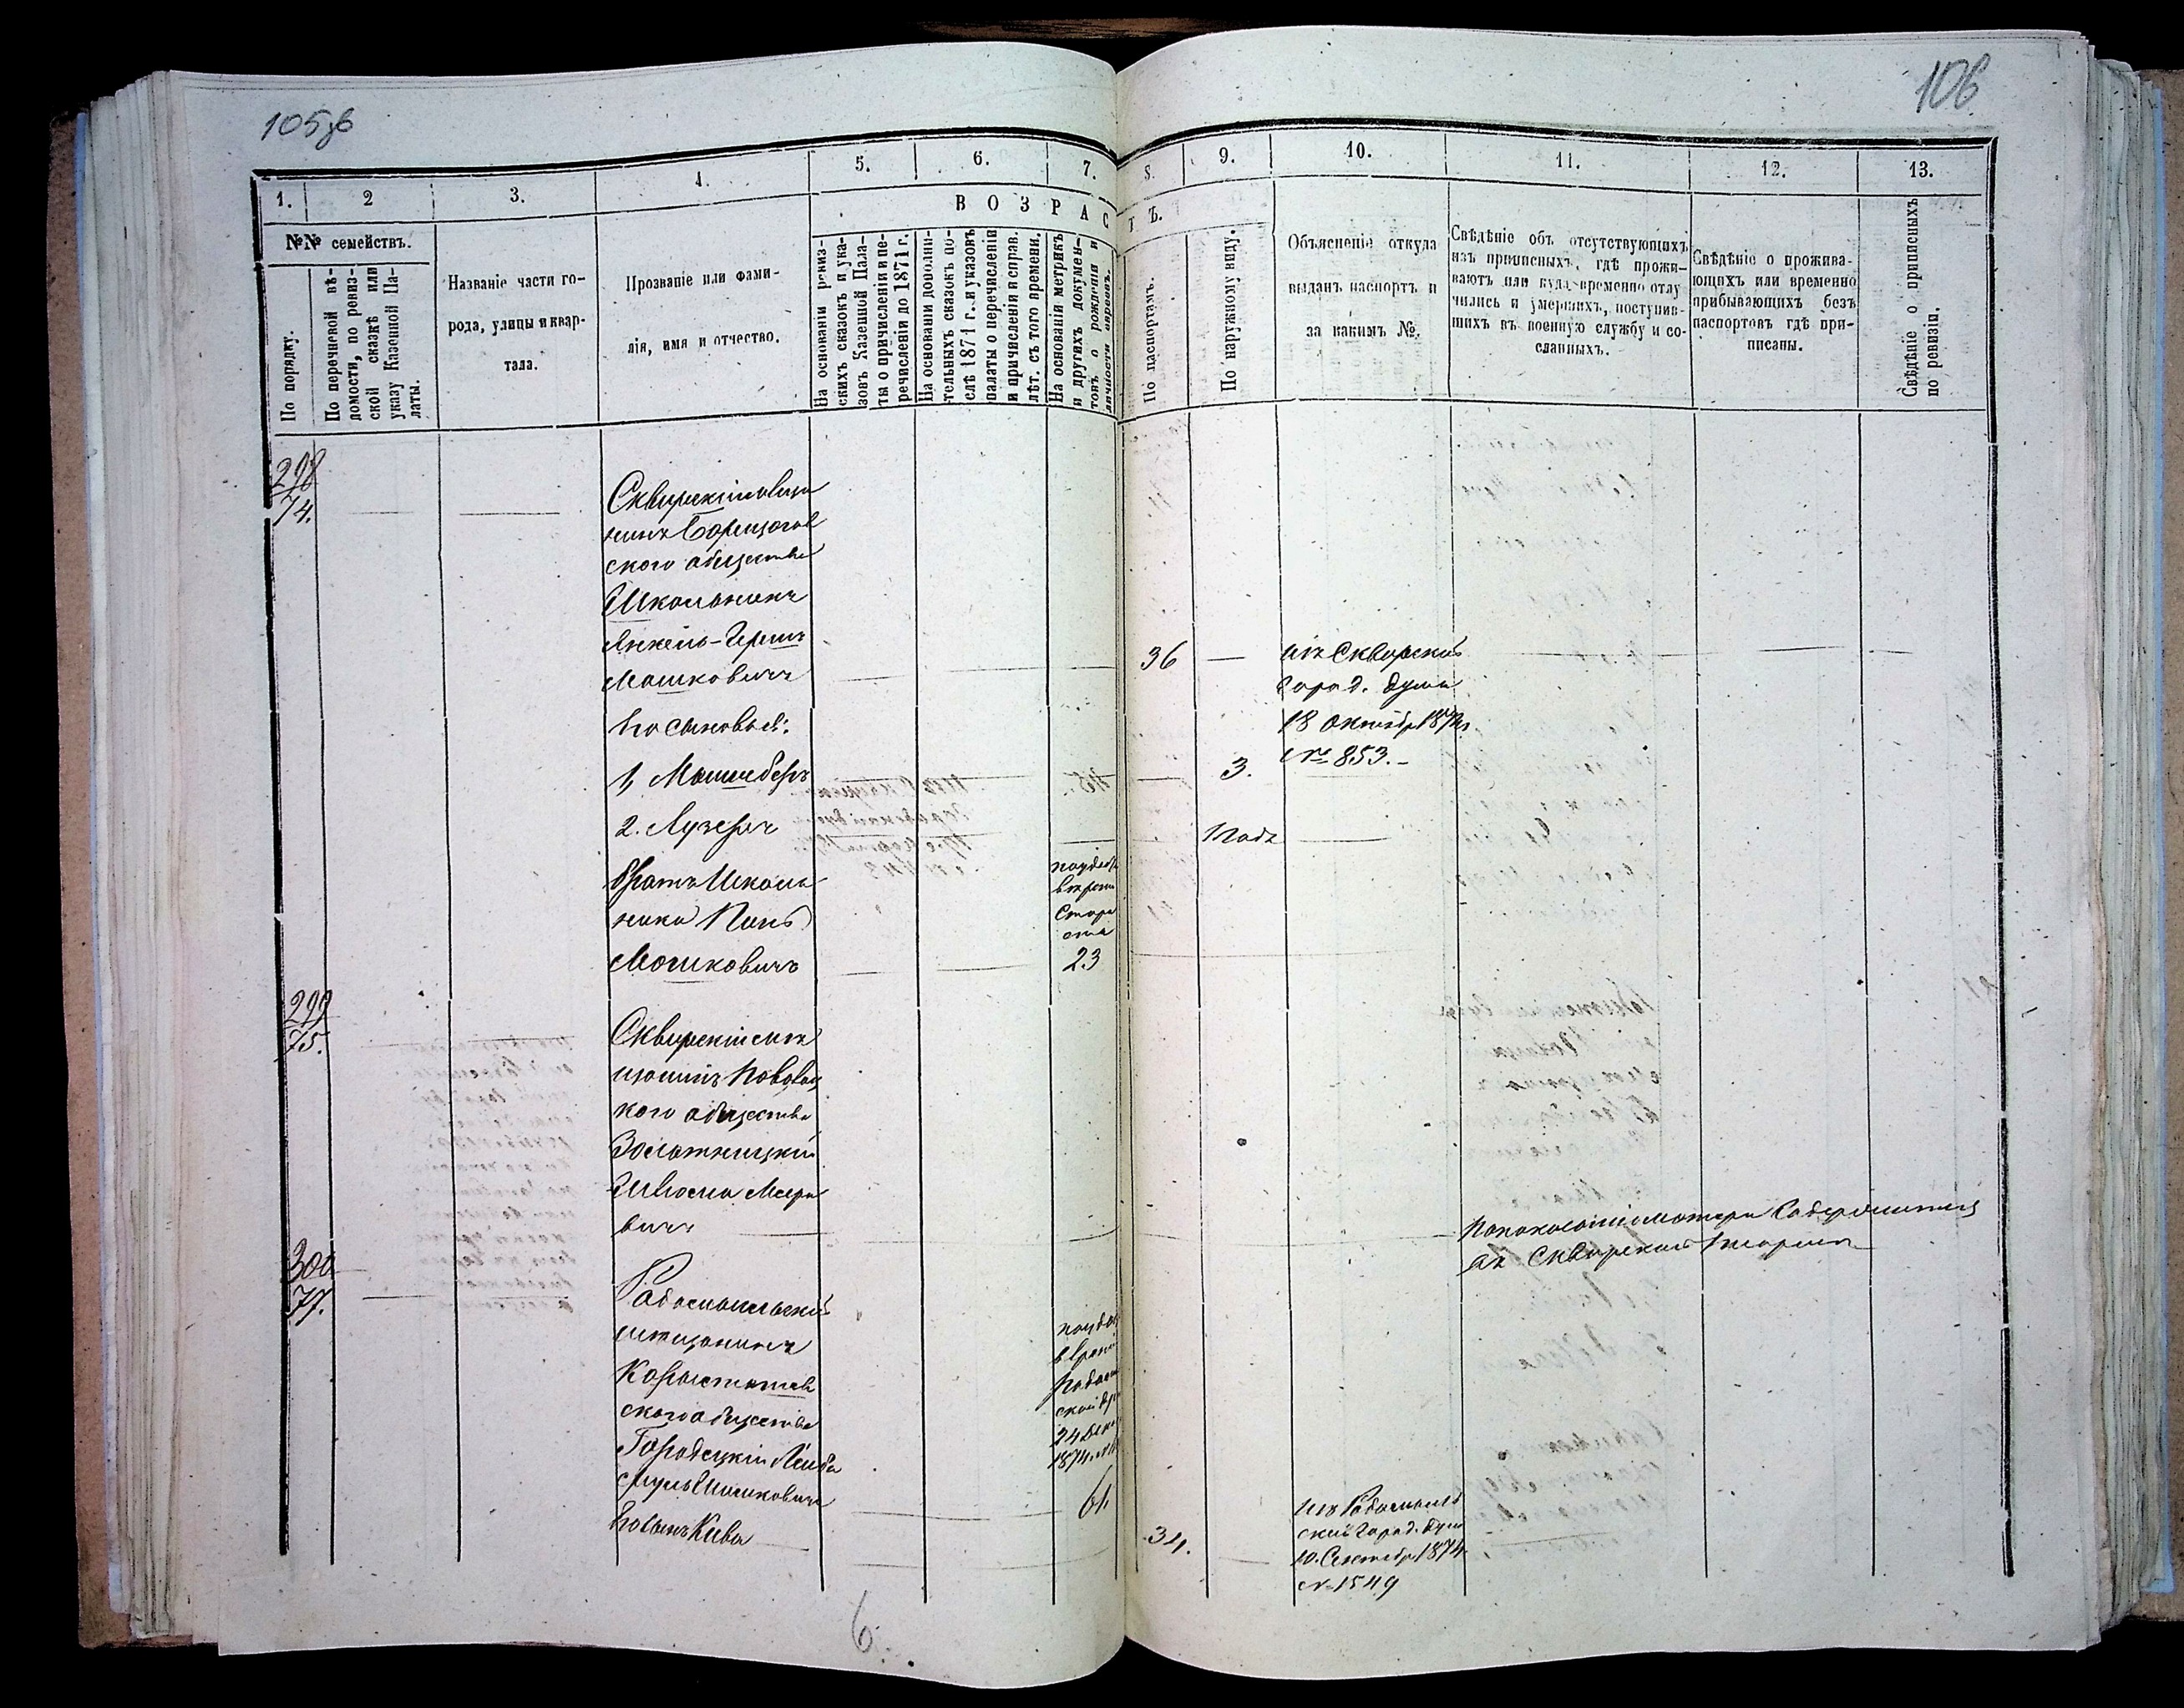 105зв
106
1. 2 3. 4. 5. 6. 7. 8. 9. 10. 11. 12. 13.
№№ семействъ.
По порядку.
По перечневой вѣ-
домости, по ревиз-
ской сказкѣ или
указу Казенной Па-
латы.
Названіе части го-
рода, улицы и квар-
тала.
Прозваніе или фами-
лія, имя и отчество.
ВОЗРАСТЪ.
На основаніи ревиз-
скихъ сказокъ и ука-
зовъ Казенной Пала-
ты о причисленіи и пе-
речисленіи до 1871 г.
На основаніи дополни-
тельныхъ сказокъ по-
слѣ 1871 г. и указовъ
палаты о перечисленіи
и причисленіи и справ.
лѣт. съ того времени.
На основаніи метрикъ
и другихъ докумен-
товъ о рожденіи и
личности евреевъ.
По паспортамъ.
По наружному виду.
Объясненіе откуда
выданъ паспортъ и
за какимъ №.
Свѣдѣніе объ отсутствующихъ
изъ приписныхъ, гдѣ прожи-
ваютъ или куда временно отлу
чились и умершихъ, поступив-
шихъ въ военную службу и со-
сланныхъ.
Свѣдѣніе о прожива-
ющихъ или временно
прибывающихъ безъ
паспортовъ гдѣ при-
писаны.
Свѣдѣніе о приписныхъ
по ревизіи.
298
74.
Сквирскій мѣща
нинъ
ского общества
Школьникъ
Янкель-Гершъ
Мошковичъ
36
изъ Сквирской
город. думы
18 октябр
№ 853.
Его сыновья:
1,
3.
2. Лузеръ
1 годъ
братъ Школь
ника
Мошковичъ
23
299
75.
Сквирскій мѣ
щанинъ
кого общества
Золотницкій
вичъ
по показанію матери содержится
въ Сквирской тюрьмѣ
300
77.
Радомысльскій
мѣщанинъ
Коростышев
ского общества
Городецкій Лейба
Мошковичъ
24 Дек
1874
61.
Его сынъ Кива
34.
изъ Радомысль
ской город. Думы
10. Сентябр 1874
№ 1549
6.